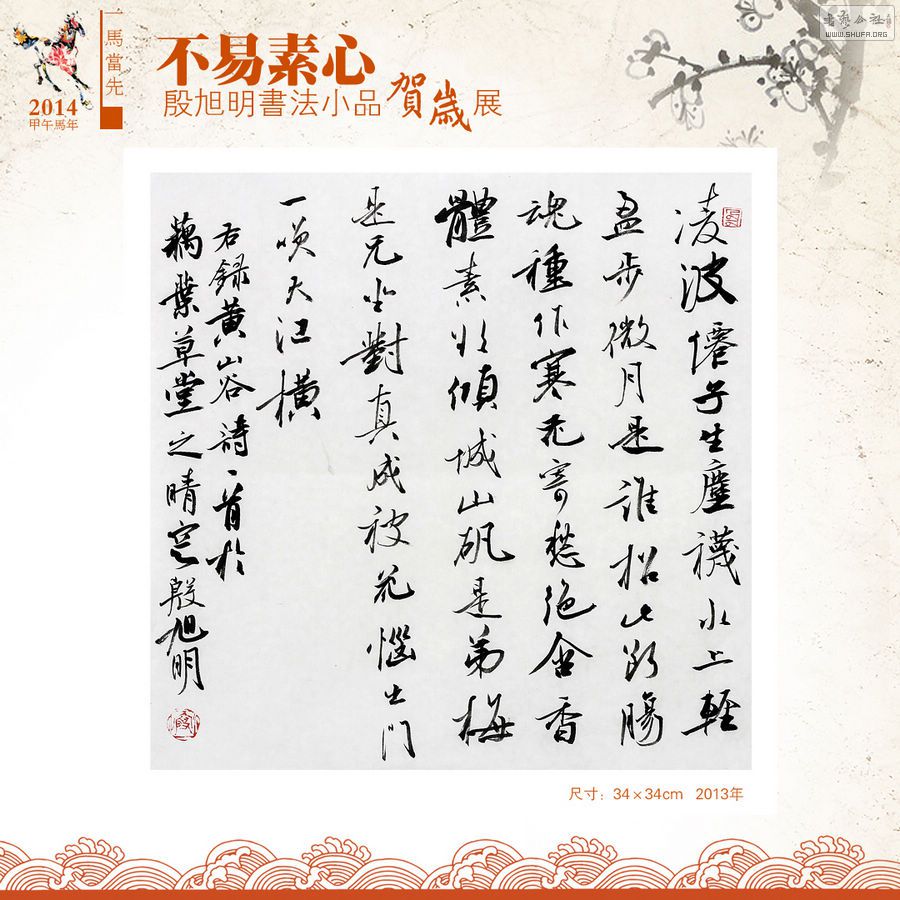 書藝公社
WWW.SHUFA.ORG
一馬當先
2014
甲午馬年
不易素心
殷旭明書法小品賀歲展
凌波僊子生塵襪水上輕
盈步微月是誰招此斷腸
魂種作寒花寄愁絕含香
體素欲傾城山矾是弟梅
是兄坐對真成被花惱出門
一笑大江橫
右錄黃山谷詩一首於
藕葉草堂之晴窗殷旭明
尺寸：34×34cm 2013年